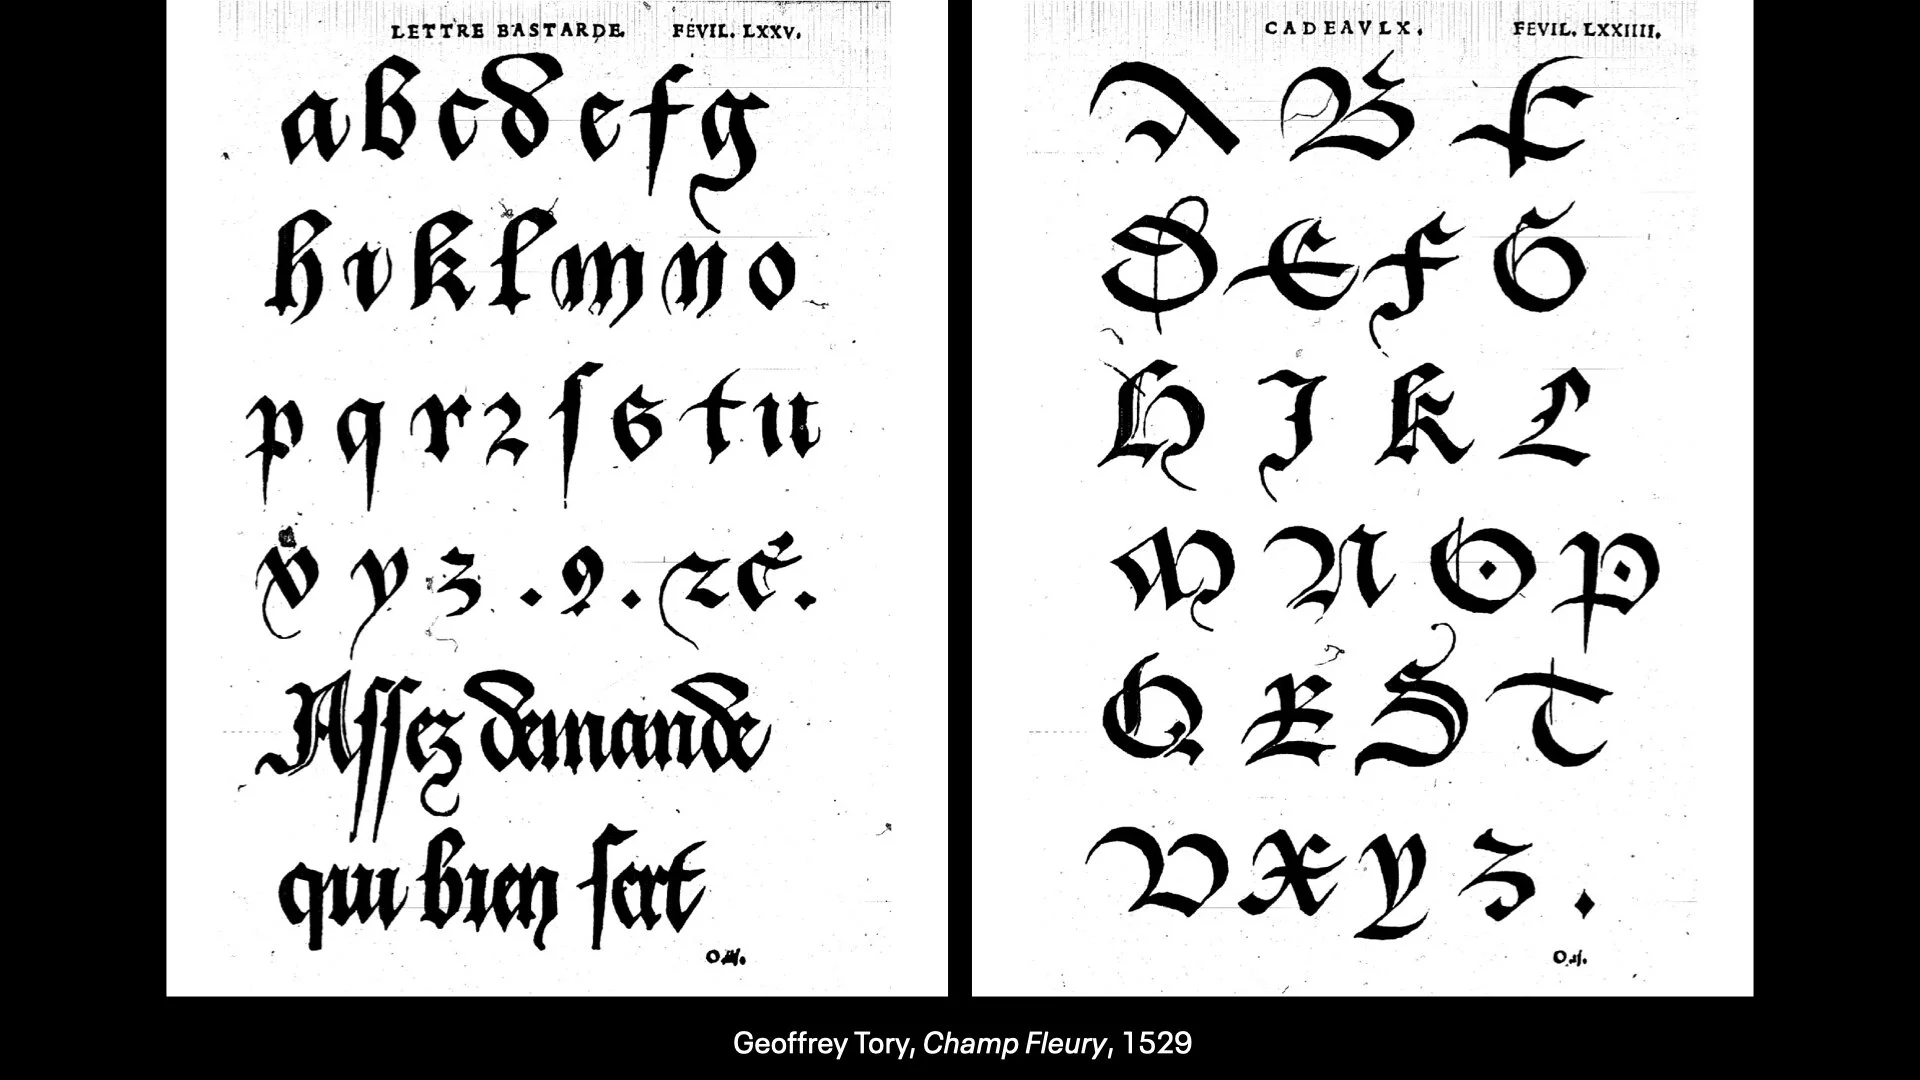 LETTRE BASTARDE. FEVIL. LXXV.
a b c d e f g
h i k l m n o
p q r ꝛ ſ s t u
v y z . 9 . ⁊c.
Aſſez demande
qui bien ſert
CADEAVLX. FEVIL. LXXIIII.
A B C
D E F G
H I K L
M N O P
Q R S T
V X Y Z .
Geoffrey Tory, Champ Fleury, 1529